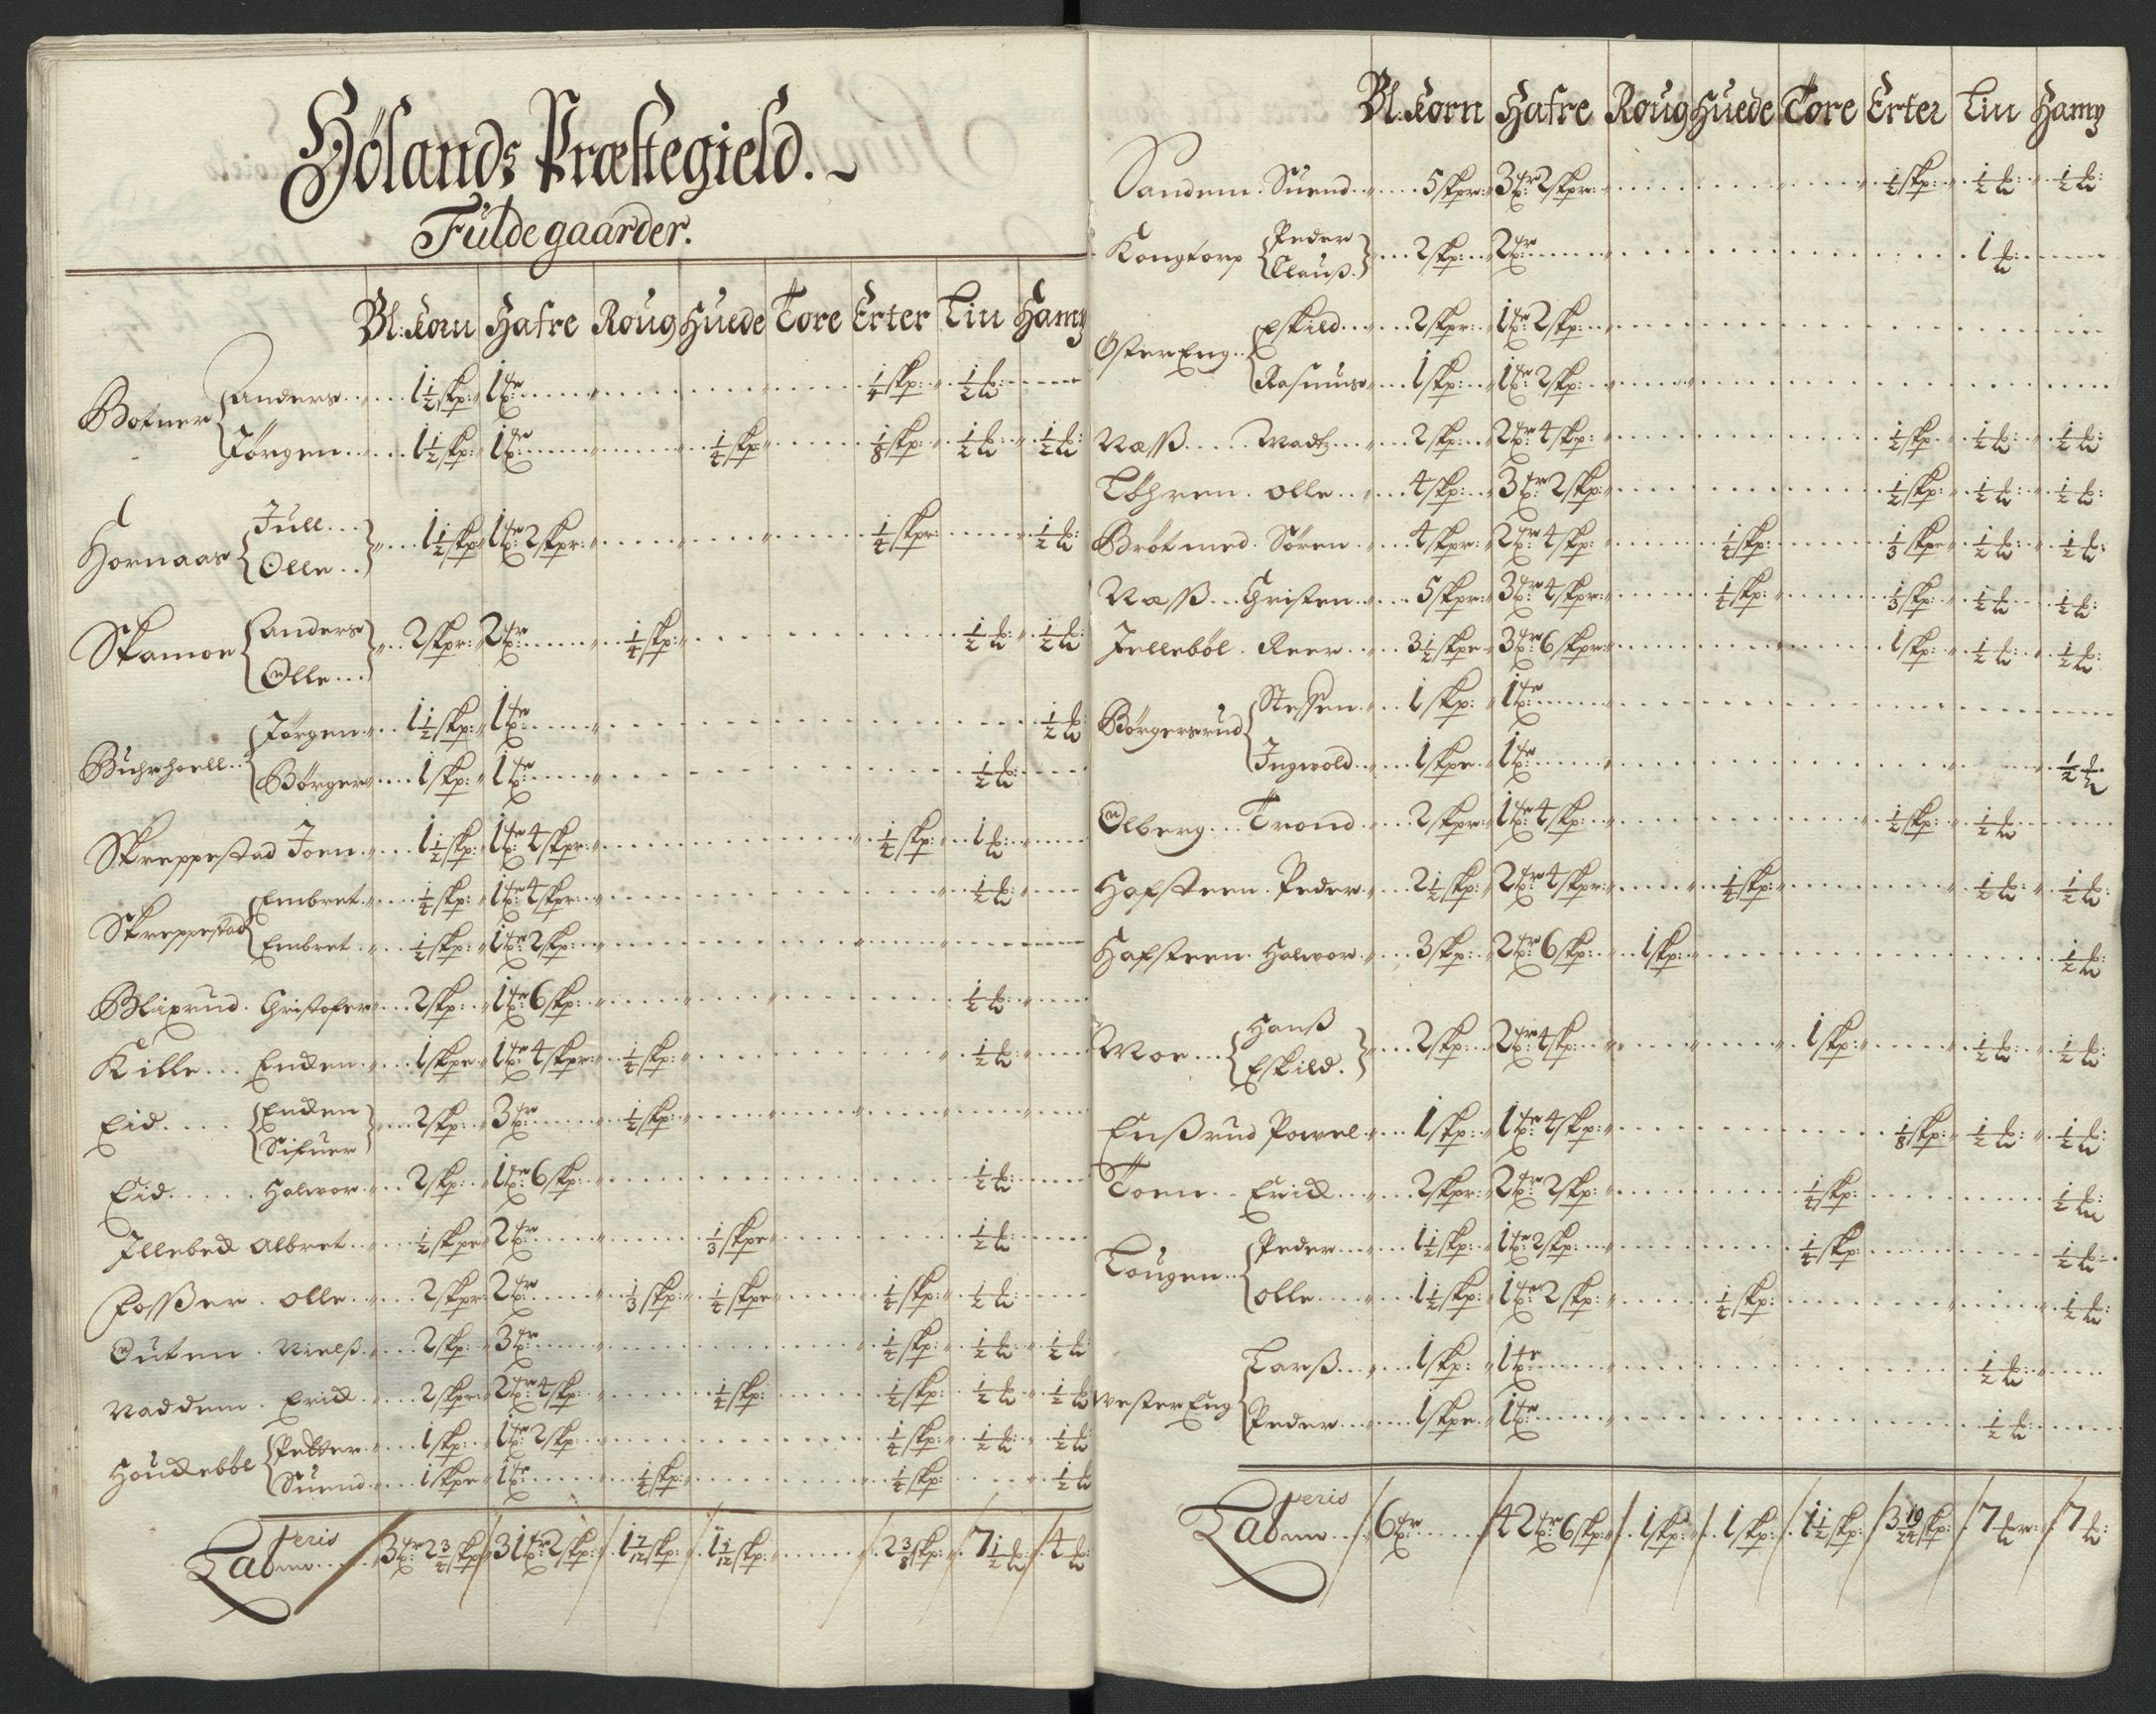 Hølands Præstegield.
Fulde gaarder.
Bl: Korn Hafre Roug Huede Tore Erter Lin Hamp
Botner Anders 1½ skp: 1 tr ¼ skp: ½ ℔:
Jørgen 1½ skp: 1 tr ¼ skp ⅛ skp: ½ ℔: ½ ℔:
Hornaas Jull
Olle 1½ skp: 1 tr: 2 skpr: ¼ skpr: ½ ℔:
Skamoe Anders
Olle 2 skpr: 2 tr ¼ skp: ½ ℔: ½ ℔:
Buhrhoell Jørgen 1½ skp: 1 tr ½ ℔:
Børger 1 skp: 1 tr ½ ℔:
Skreppestad Joen 1½ skp: 1 tr: 4 skpr: ¼ skp: 1 ℔:
Skreppestad Embret ¼ skp: 1 tr: 4 skpr: ½ ℔:
Embret ½ skp: 1 tr: 2 skp:
Blixrud Christofer 2 skp: 1 tr: 6 skp: ½ ℔:
Kille Endken 1 skpe 1 tr: 4 skpr: ¼ skp: ½ ℔:
Eid Endken
Sifuer 2 skp: 3 tr ½ skp:
Eid Halvor 2 skp: 1 tr: 6 skp: ½ ℔:
Illebek Albret ½ skpe 2 tr ⅓ skpe ½ ℔:
Fosser Olle 2 skpr: 2 tr ⅓ skp: ¼ skpe ¼ skp: ½ ℔:
Outen Nielß 2 skp: 3 tr ¼ skp: ½ ℔: ½ ℔:
Naddem Erick 2 skpr: 2 tr: 4 skp: ½ skp: ½ skp: ½ ℔: ½ ℔:
Houckebøl Petter 1 skp: 1 tr: 2 skp: ¼ skp: ½ ℔: ½ ℔:
Suend 1 skpe 1 tr ¼ skp: ¼ skp: ½ ℔:
Lateris 3 tr: 2¾ skp: 31 tr: 2 skp: 1 7/12 skp: 1 1/12 skp: 2⅜ skp: 7½ ℔: 4 ℔:
Bl: Korn Hafre Roug Huede Tore Erter Lin Hamp
Sandem Suend 5 skpr: 3 tr: 2 skpr: ½ skp: ½ ℔: ½ ℔:
Kongtorp Peder
Clauß 2 skp: 2 tr 1 ℔:
Øster Eng Eskild 2 skpr: 1 tr: 2 skp:
Rasmus 1 skp: 1 tr: 2 skp:
Næss Madtz 2 skp: 2 tr: 4 skp: ½ skp: ½ ℔: ½ ℔:
Løhren Olle 4 skp: 3 tr: 2 skp: ½ skp: ½ ℔: ½ ℔:
Brøtmed Søren 4 skpr: 2 tr: 4 skp: ¼ skp: ⅓ skpe ½ ℔: ½ ℔:
Næss Christen 5 skpr: 3 tr: 4 skpr: ¼ skp: ⅓ skp: ½ ℔: ½ ℔:
Jellebøl Reer 3½ skpe 3 tr: 6 skpr: 1 skp: ½ ℔: ½ ℔:
Børgersrud Steffen 1 skp: 1 tr
Ingwold 1 skpe 1 tr ½ ℔:
Olberg Trond 2 skpr: 1 tr: 4 skp: ½ skp: ½ ℔:
Hafsteen Peder 2½ skp: 2 tr: 4 skpr: ½ skp: ½ ℔: ½ ℔:
Hafsteen Halvor 3 skp: 2 tr: 6 skp: 1 skp: ½ ℔:
Moe Hanß
Eskild 2 skp: 2 tr: 4 skp: 1 skp: ½ ℔: ½ ℔:
Enßrud Powel 1 skp: 1 tr: 4 skp: ⅛ skp: ½ ℔: ½ ℔:
Toen Erick 2 skpr: 2 tr: 2 skp: ¼ skp: ½ ℔:
Lougen Peder 1½ skp: 1 tr: 2 skp: ¼ skp: ½ ℔:
Olle 1½ skp: 1 tr: 2 skp: ¼ skp: ½ ℔:
Wester Eng Larß 1 skp: 1 tr ½ ℔:
Peder 1 skpe 1 tr ½ ℔:
Lateris 6 tr 42 tr: 6 skp: 1 skp: 1 skp: 1½ skp: 3 19/24 skp: 7 ℔: 7 ℔: